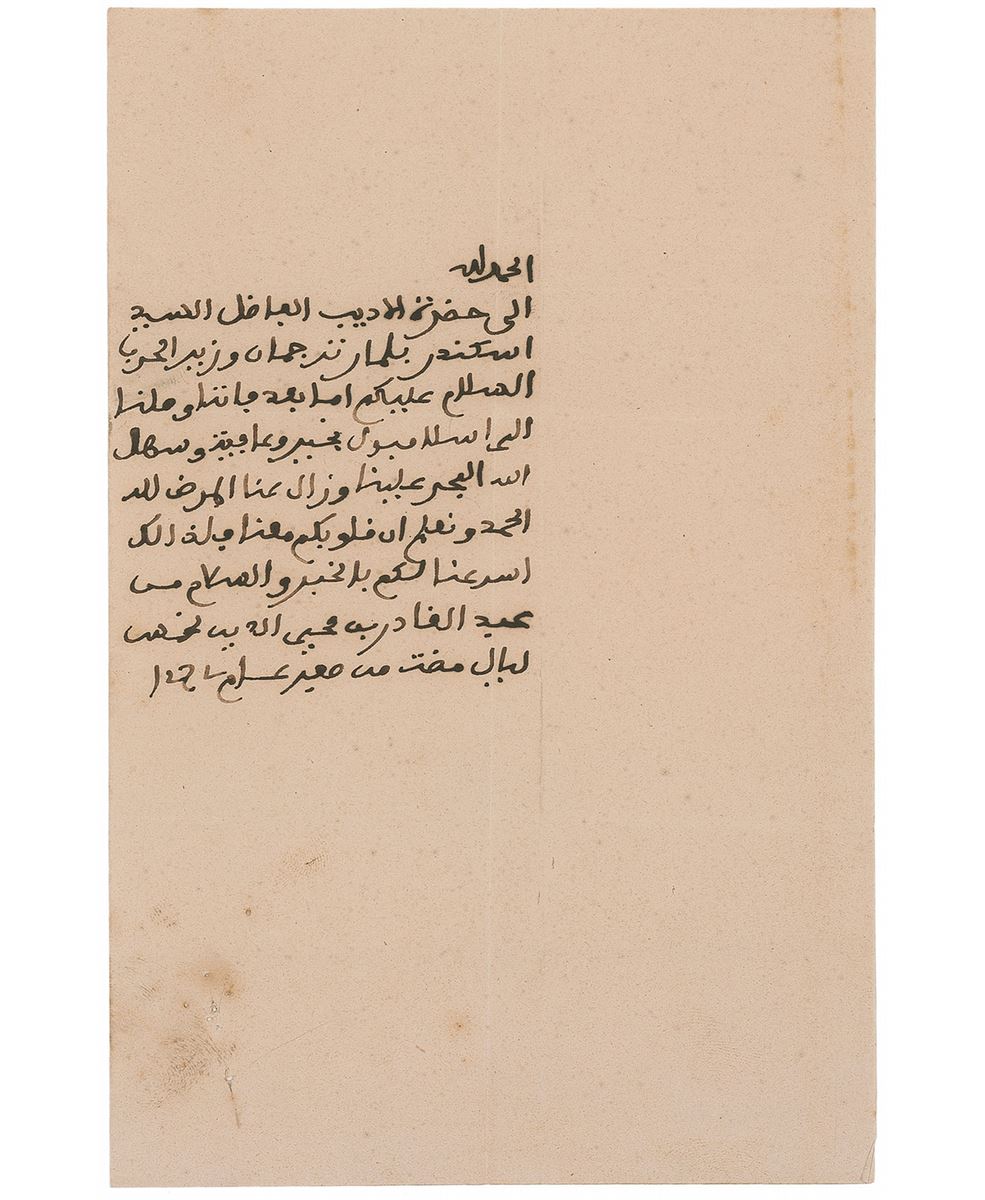 الحمد لله
الى حضرة الاديب الفاضل السيد
اسكندر بلمار ترجمان وزير الحرب
السلام عليكم اما بعد فاننا وصلنا
الى اسلامبول بخير وعافية وسهل
الله البحر علينا وزال عنا المرض لله
الحمد ونعلم ان قلوبكم معنا فلذالك
اسرعنا لكم بالخبر والسلام من
عبد القادر بن محيى الدين لخمس
ليال مضت من صفر عام